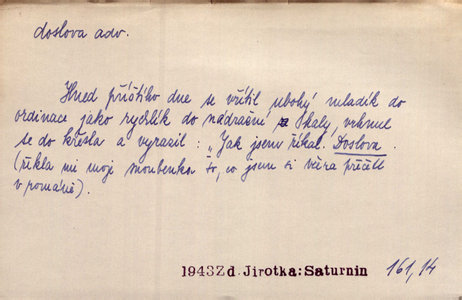 doslova adv.
Hned příštího dne se vřítil ubohý mladík do
ordinace jako rychlík do nádražní haly, vrhnul
se do křesla a vyrazil: „Jak jsem říkal. Doslova.
(řekla mi moje snoubenka to, co jsem si včera přečetl
v románě).
1943Zd.Jirotka:Saturnin 161,14